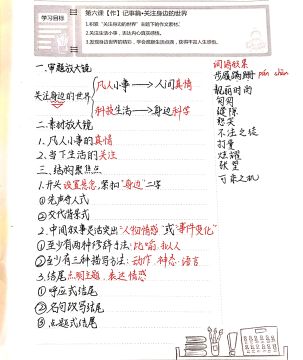 学习目标
第六课【作】记事篇·关注身边的世界
1.积累“关注身边的世界”主题下的作文素材。
2.关注生活小事，表达内心真实感情。
3.发现身边世界的精彩，学会观察生活点滴，获得不同人生感悟。
一.审题放大镜
关注身边的世界
凡人小事→人间真情
科技生活→身边科学
二.素材放大镜
1.凡人小事的真情
2.当下生活的关注
三.结构聚焦点
1.开头设置悬念,紧扣“身边”二字
①先声夺人式
②交代背景式
2.中间叙事灵活突出“人物情感”或“事件变化”
①至少有两种修辞手法:比喻.拟人
②至少有三种描写方法:动作.神态.语言
3.结尾点明主题,表达情感
①呼应式结尾
②名句改写结尾
③点题式结尾
词语效果
步履蹒跚 pán shān
靓丽时尚
匍匐
缝隙
怒关
不法之徒
打量
炫耀
联盟
可乘之机